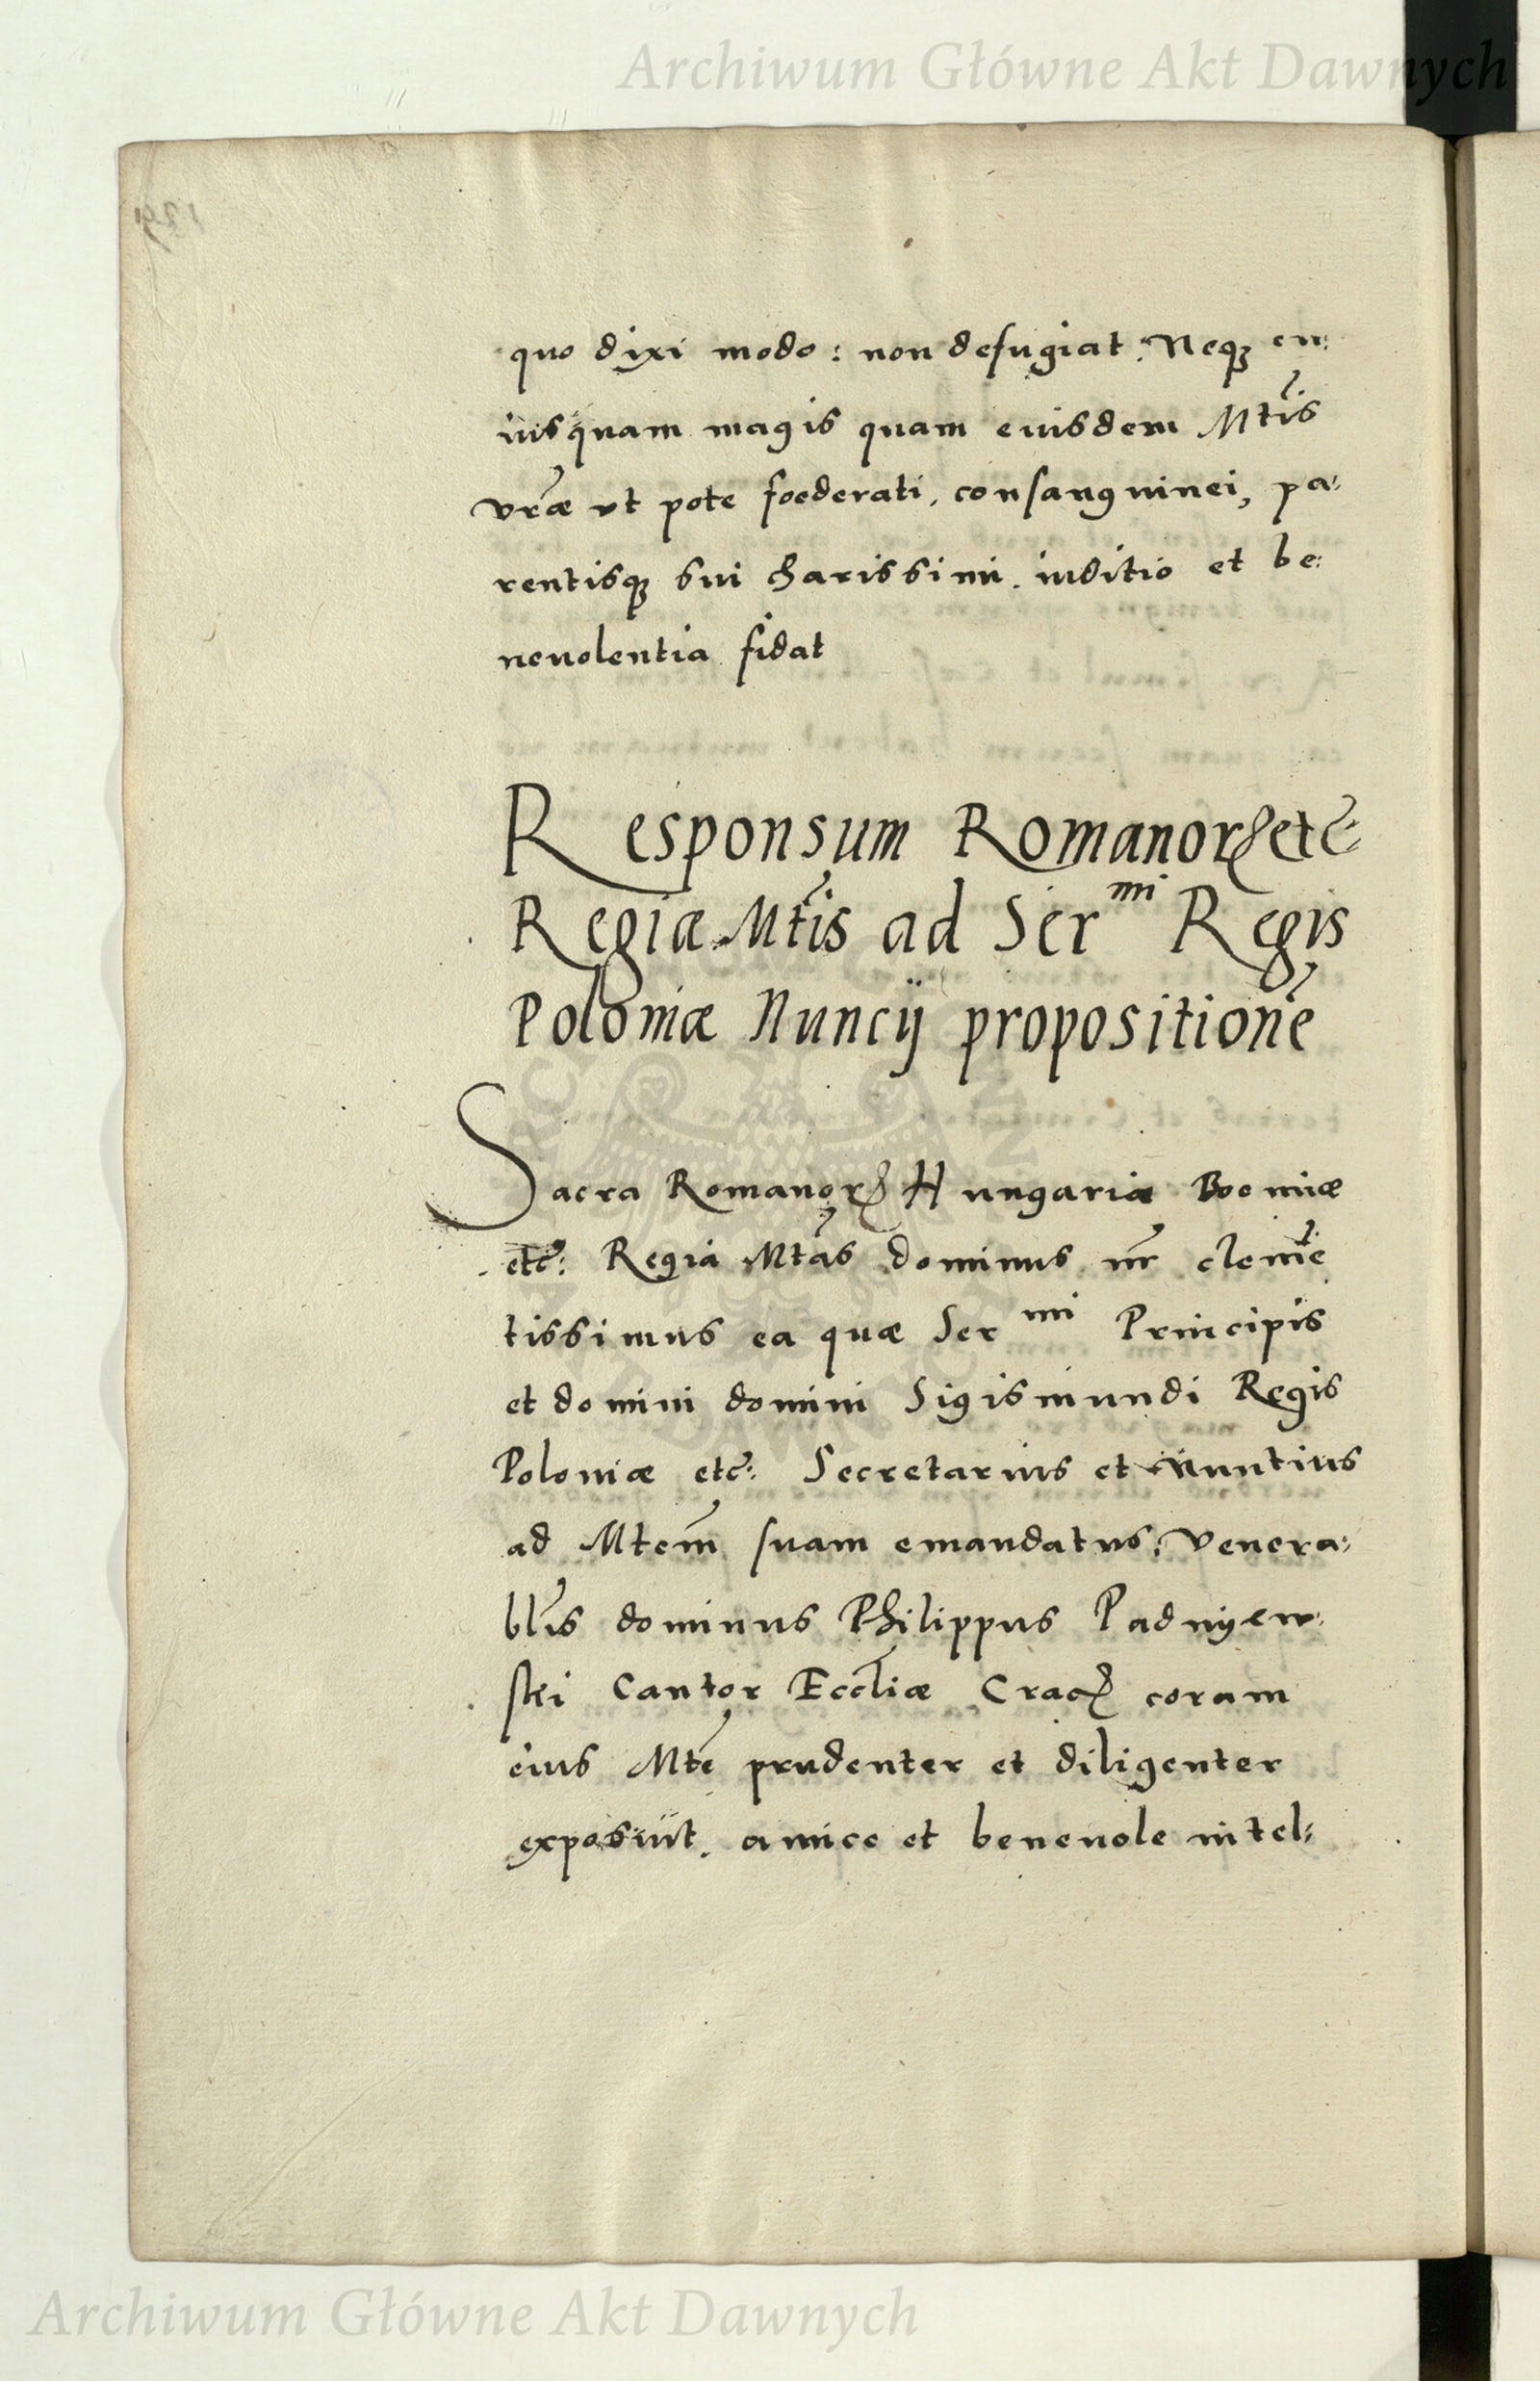 Archiwum Główne Akt Dawnych
quo dixi modo: non defugiat. Neqꝫ cu:
iusquam magis quam eiusdem Mtis
vrae ut pote foederati, consanguinei, pa:
rentisqꝫ sui charissimi iuditio et be:
neuolentia fidat
Responsum Romanorꝝ etc:
Regiae Mtis ad Ser mi Regis
Poloniae Nuncij propositione
Sacra Romanorꝝ Hungariæ Boemiæ
etc: Regia Mtas dominus nr cleme
tissimus ea quæ Ser mi Principis
et domini domini Sigismundi Regis
Poloniæ etc: Secretarius et Nuntius
ad Mtem suam emandatus, Venera:
blis dominus Philippus Padnyew:
skí Cantor Eccliæ Crac coram
eius Mte prudenter et diligenter
exposuit, amice et beneuole intel:
Archiwum Główne Akt Dawnych